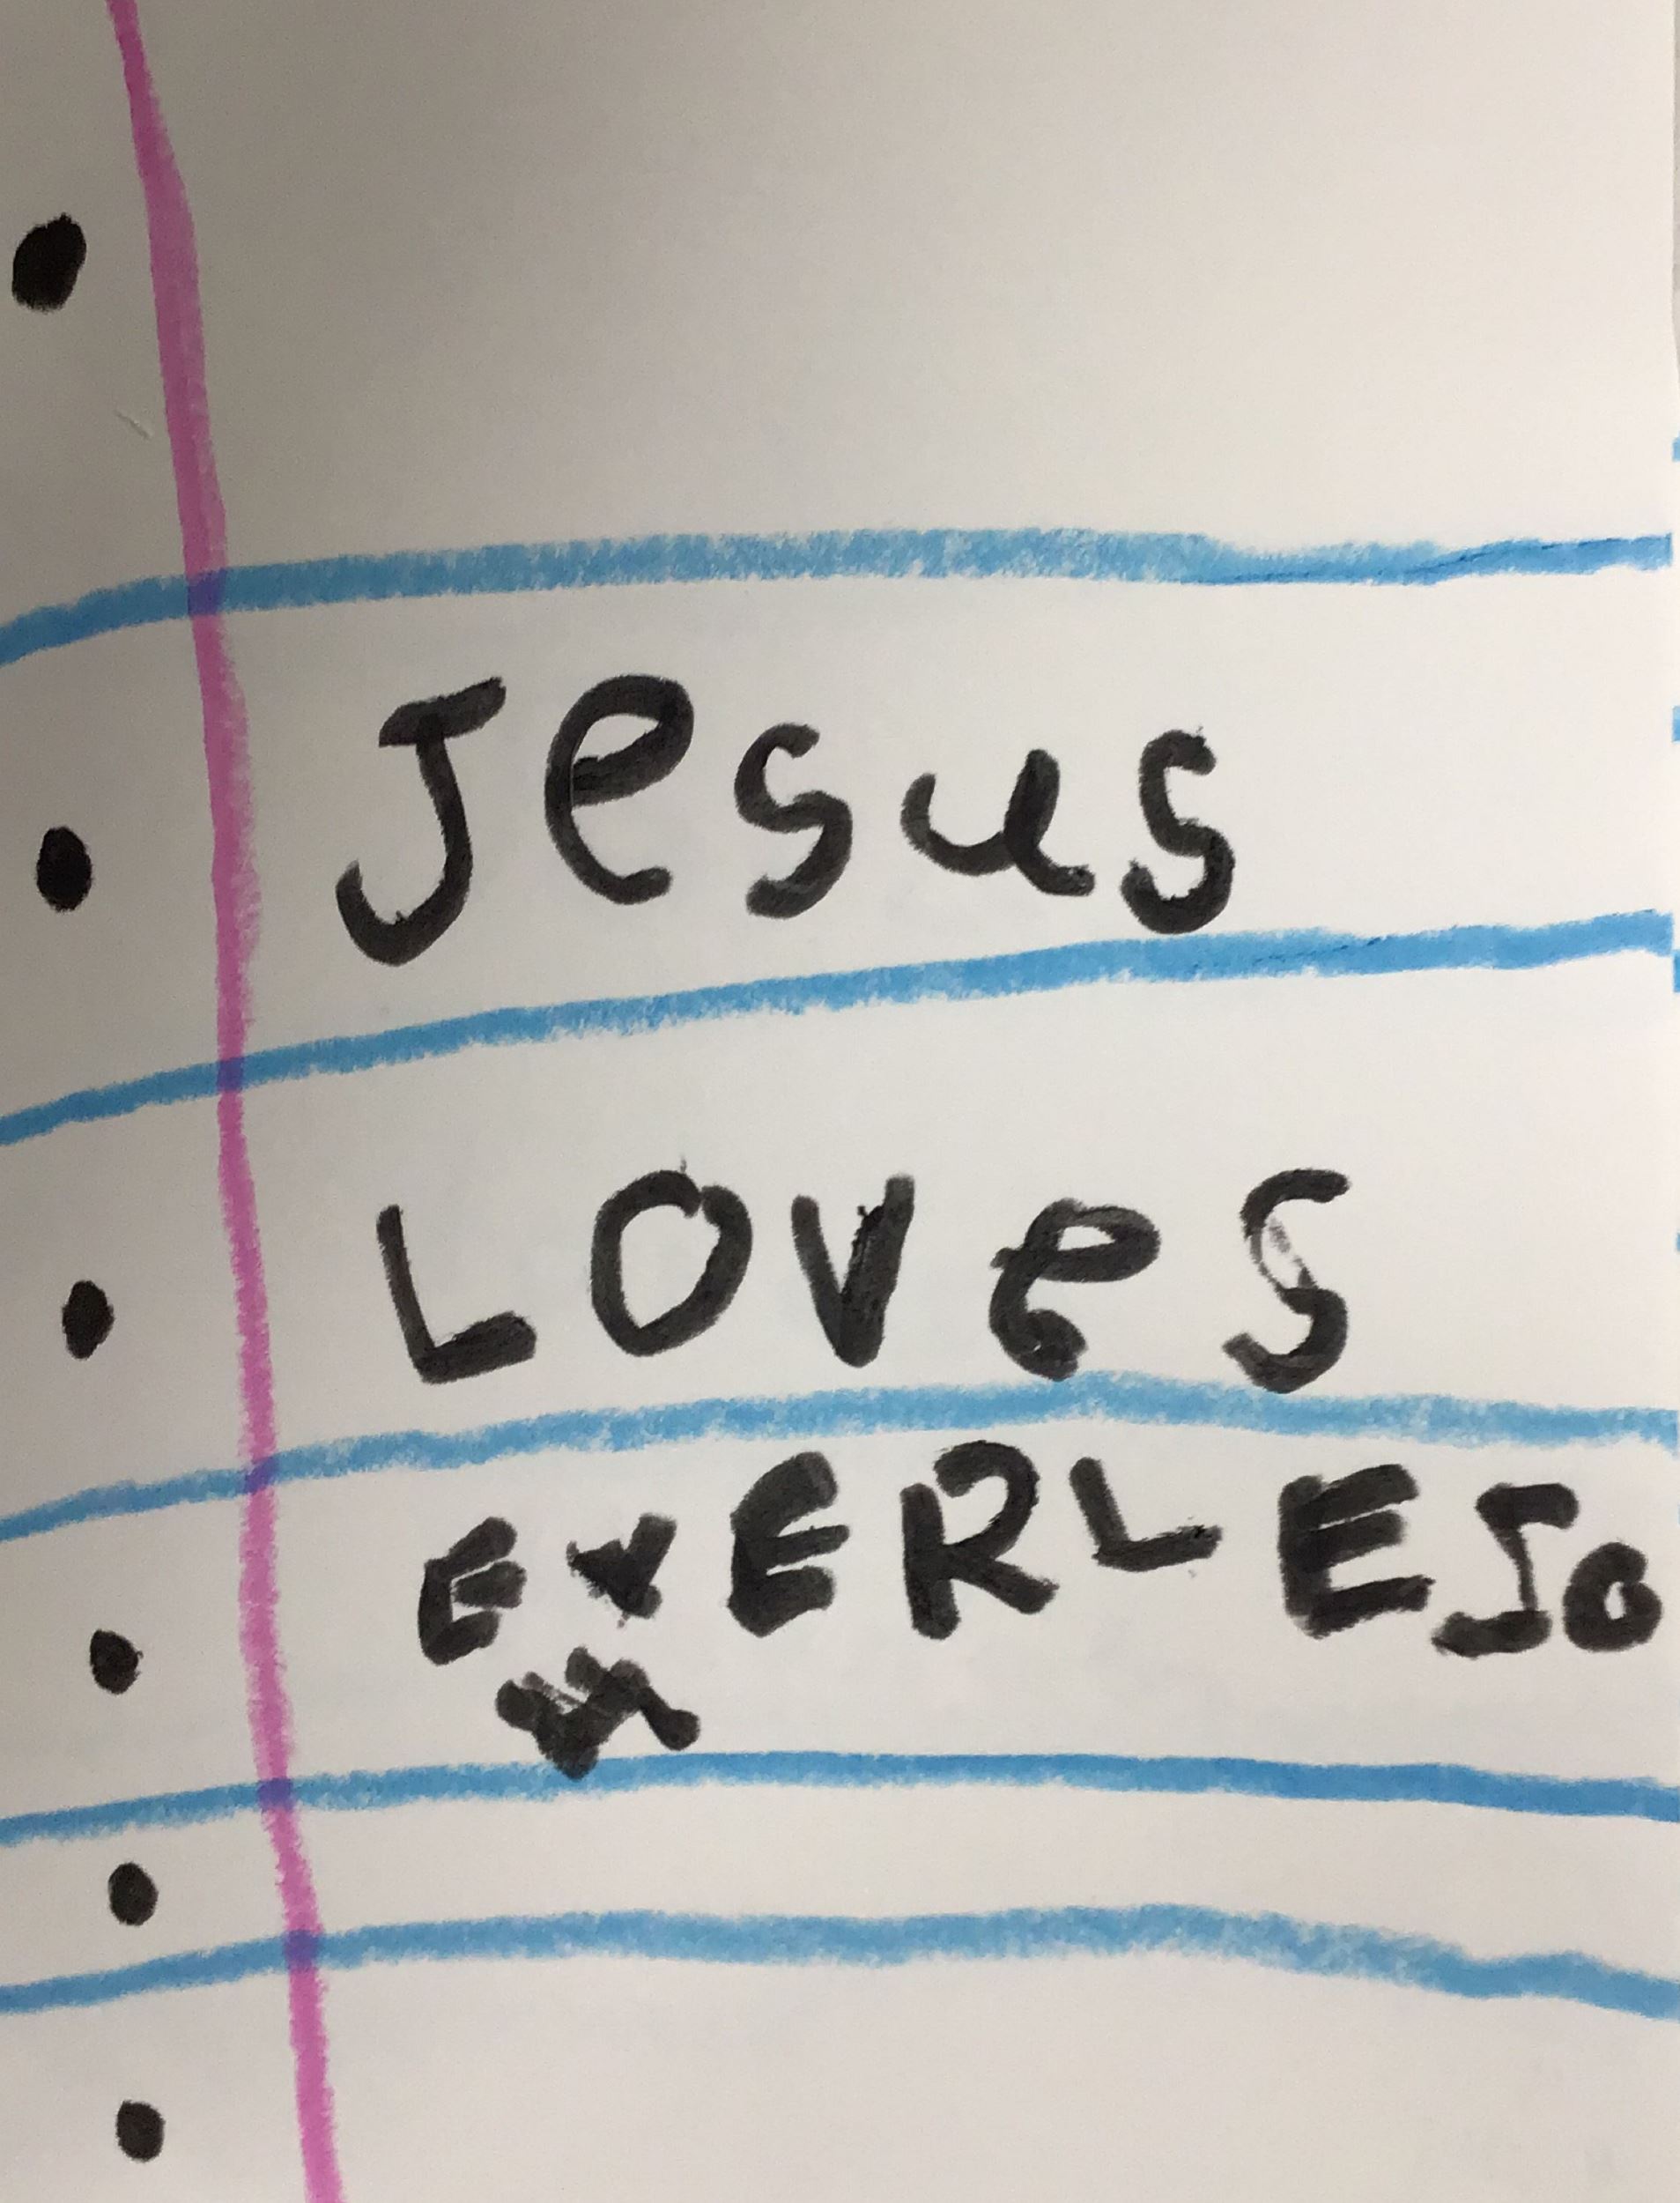 Jesus
Loves
EVERLESO
N